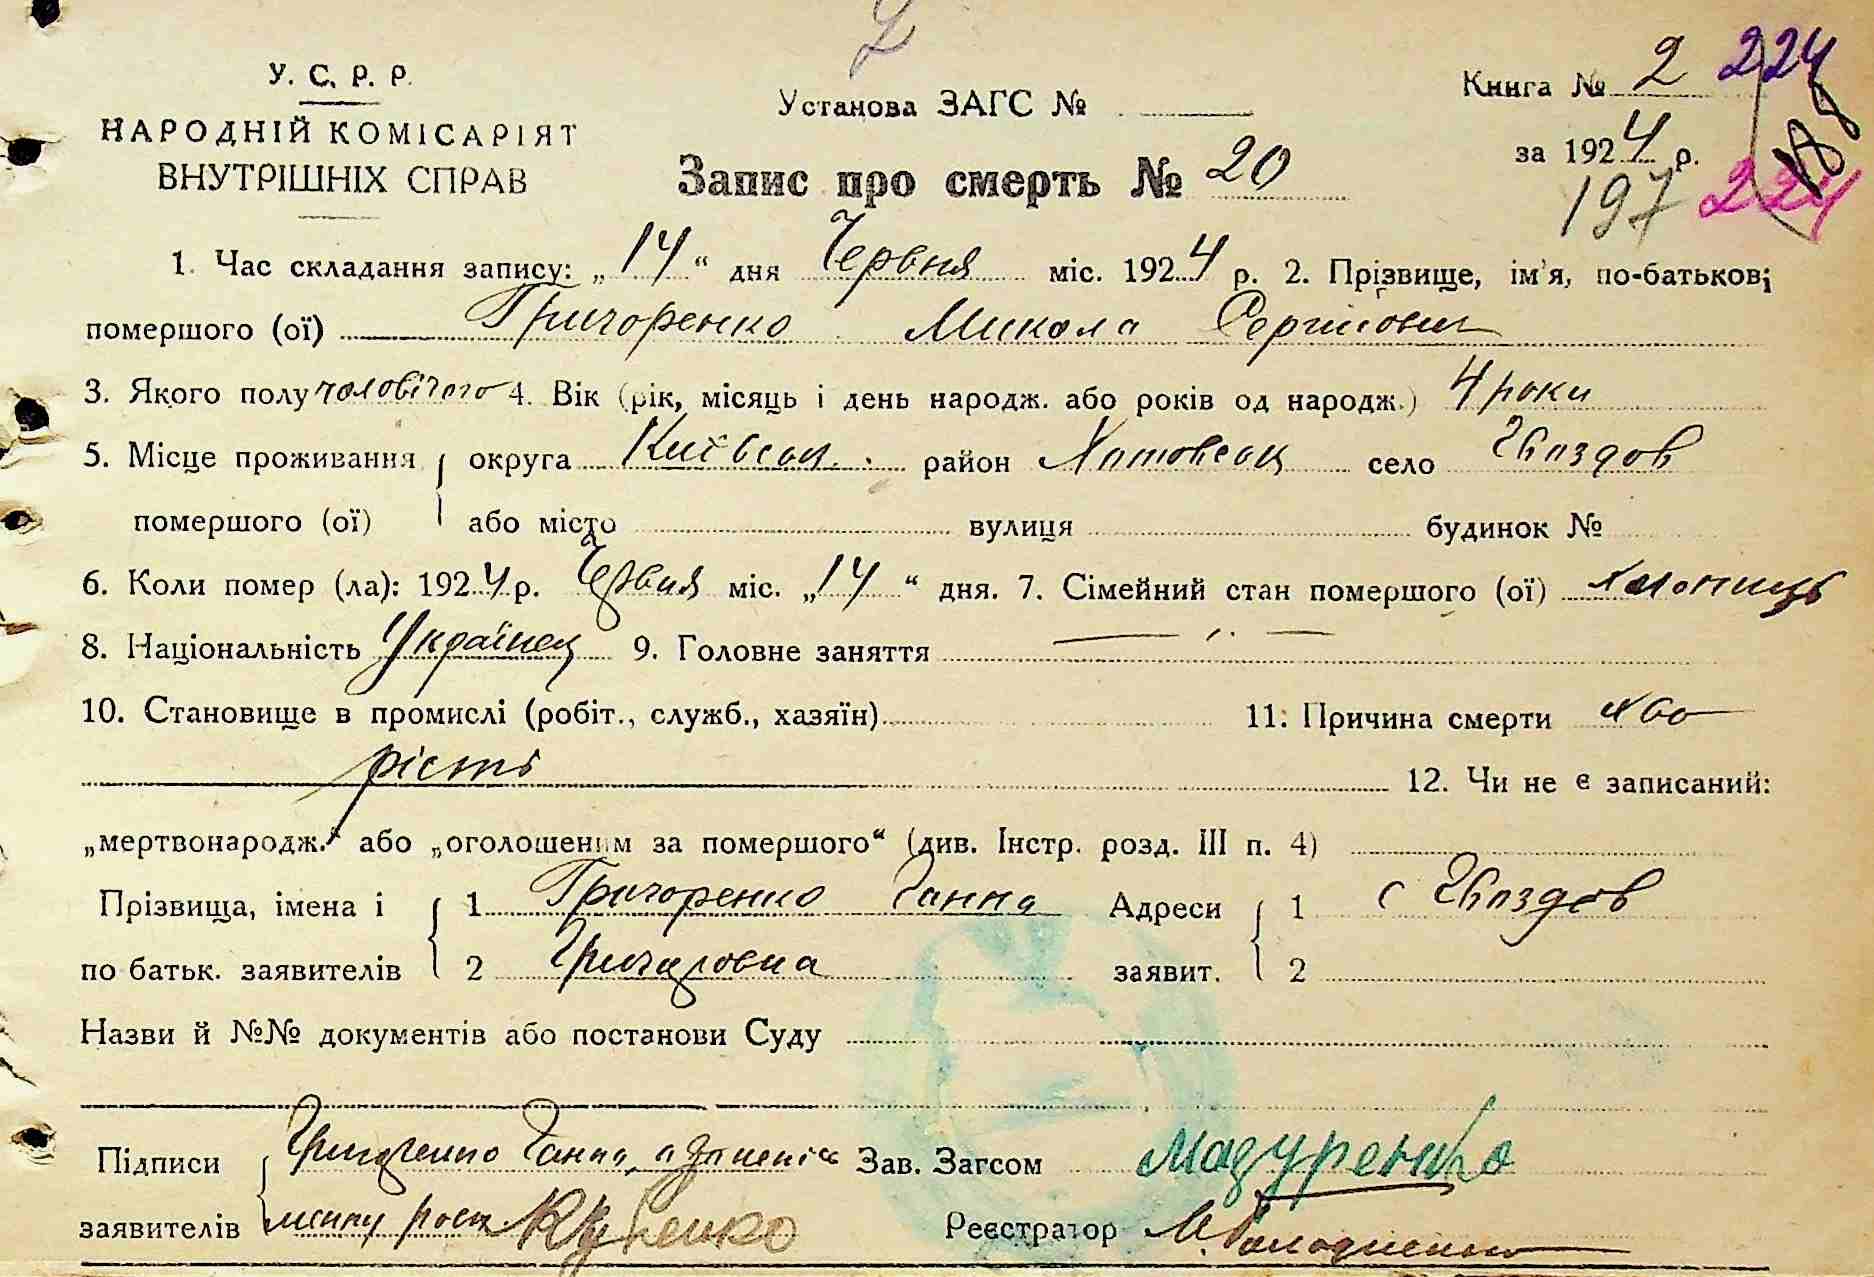 2
У. С. Р. Р.
НАРОДНІЙ КОМІСАРІЯТ
ВНУТРІШНІХ СПРАВ
Установа ЗАГС №
Запис про смерть № 20
Книга № 2 224
за 1924 р. 188
197 224
1. Час складання запису: „14“ дня Червня міс. 1924 р. 2. Прізвище, ім'я, по-батькові
помершого (ої) Григоренко Микола Сергійович
3. Якого полу чоловічого 4. Вік (рік, місяць і день народж. або років од народж.) 4 роки
5. Місце проживання округа Київськ. район Хотовськ село Гвоздов
помершого (ої) або місто вулиця будинок №
6. Коли помер (ла): 1924 р. Червня міс. „14“ дня. 7. Сімейний стан помершого (ої) хлопиць
8. Національність Українец 9. Головне заняття —
10. Становище в промислі (робіт., служб., хазяїн) 11: Причина смерти хво
рість 12. Чи не є записаний:
„мертвонародж.“ або „оголошеним за помершого“ (див. Інстр. розд. III п. 4)
Прізвища, імена і 1 Григоренко Ганна Адреси 1 с Гвоздов
по батьк. заявителів 2 Григоровна заявит. 2
Назви й №№ документів або постанови Суду
Підписи Григоренко Ганна Зав. Загсом Мазуренко
заявителів Реєстратор М.